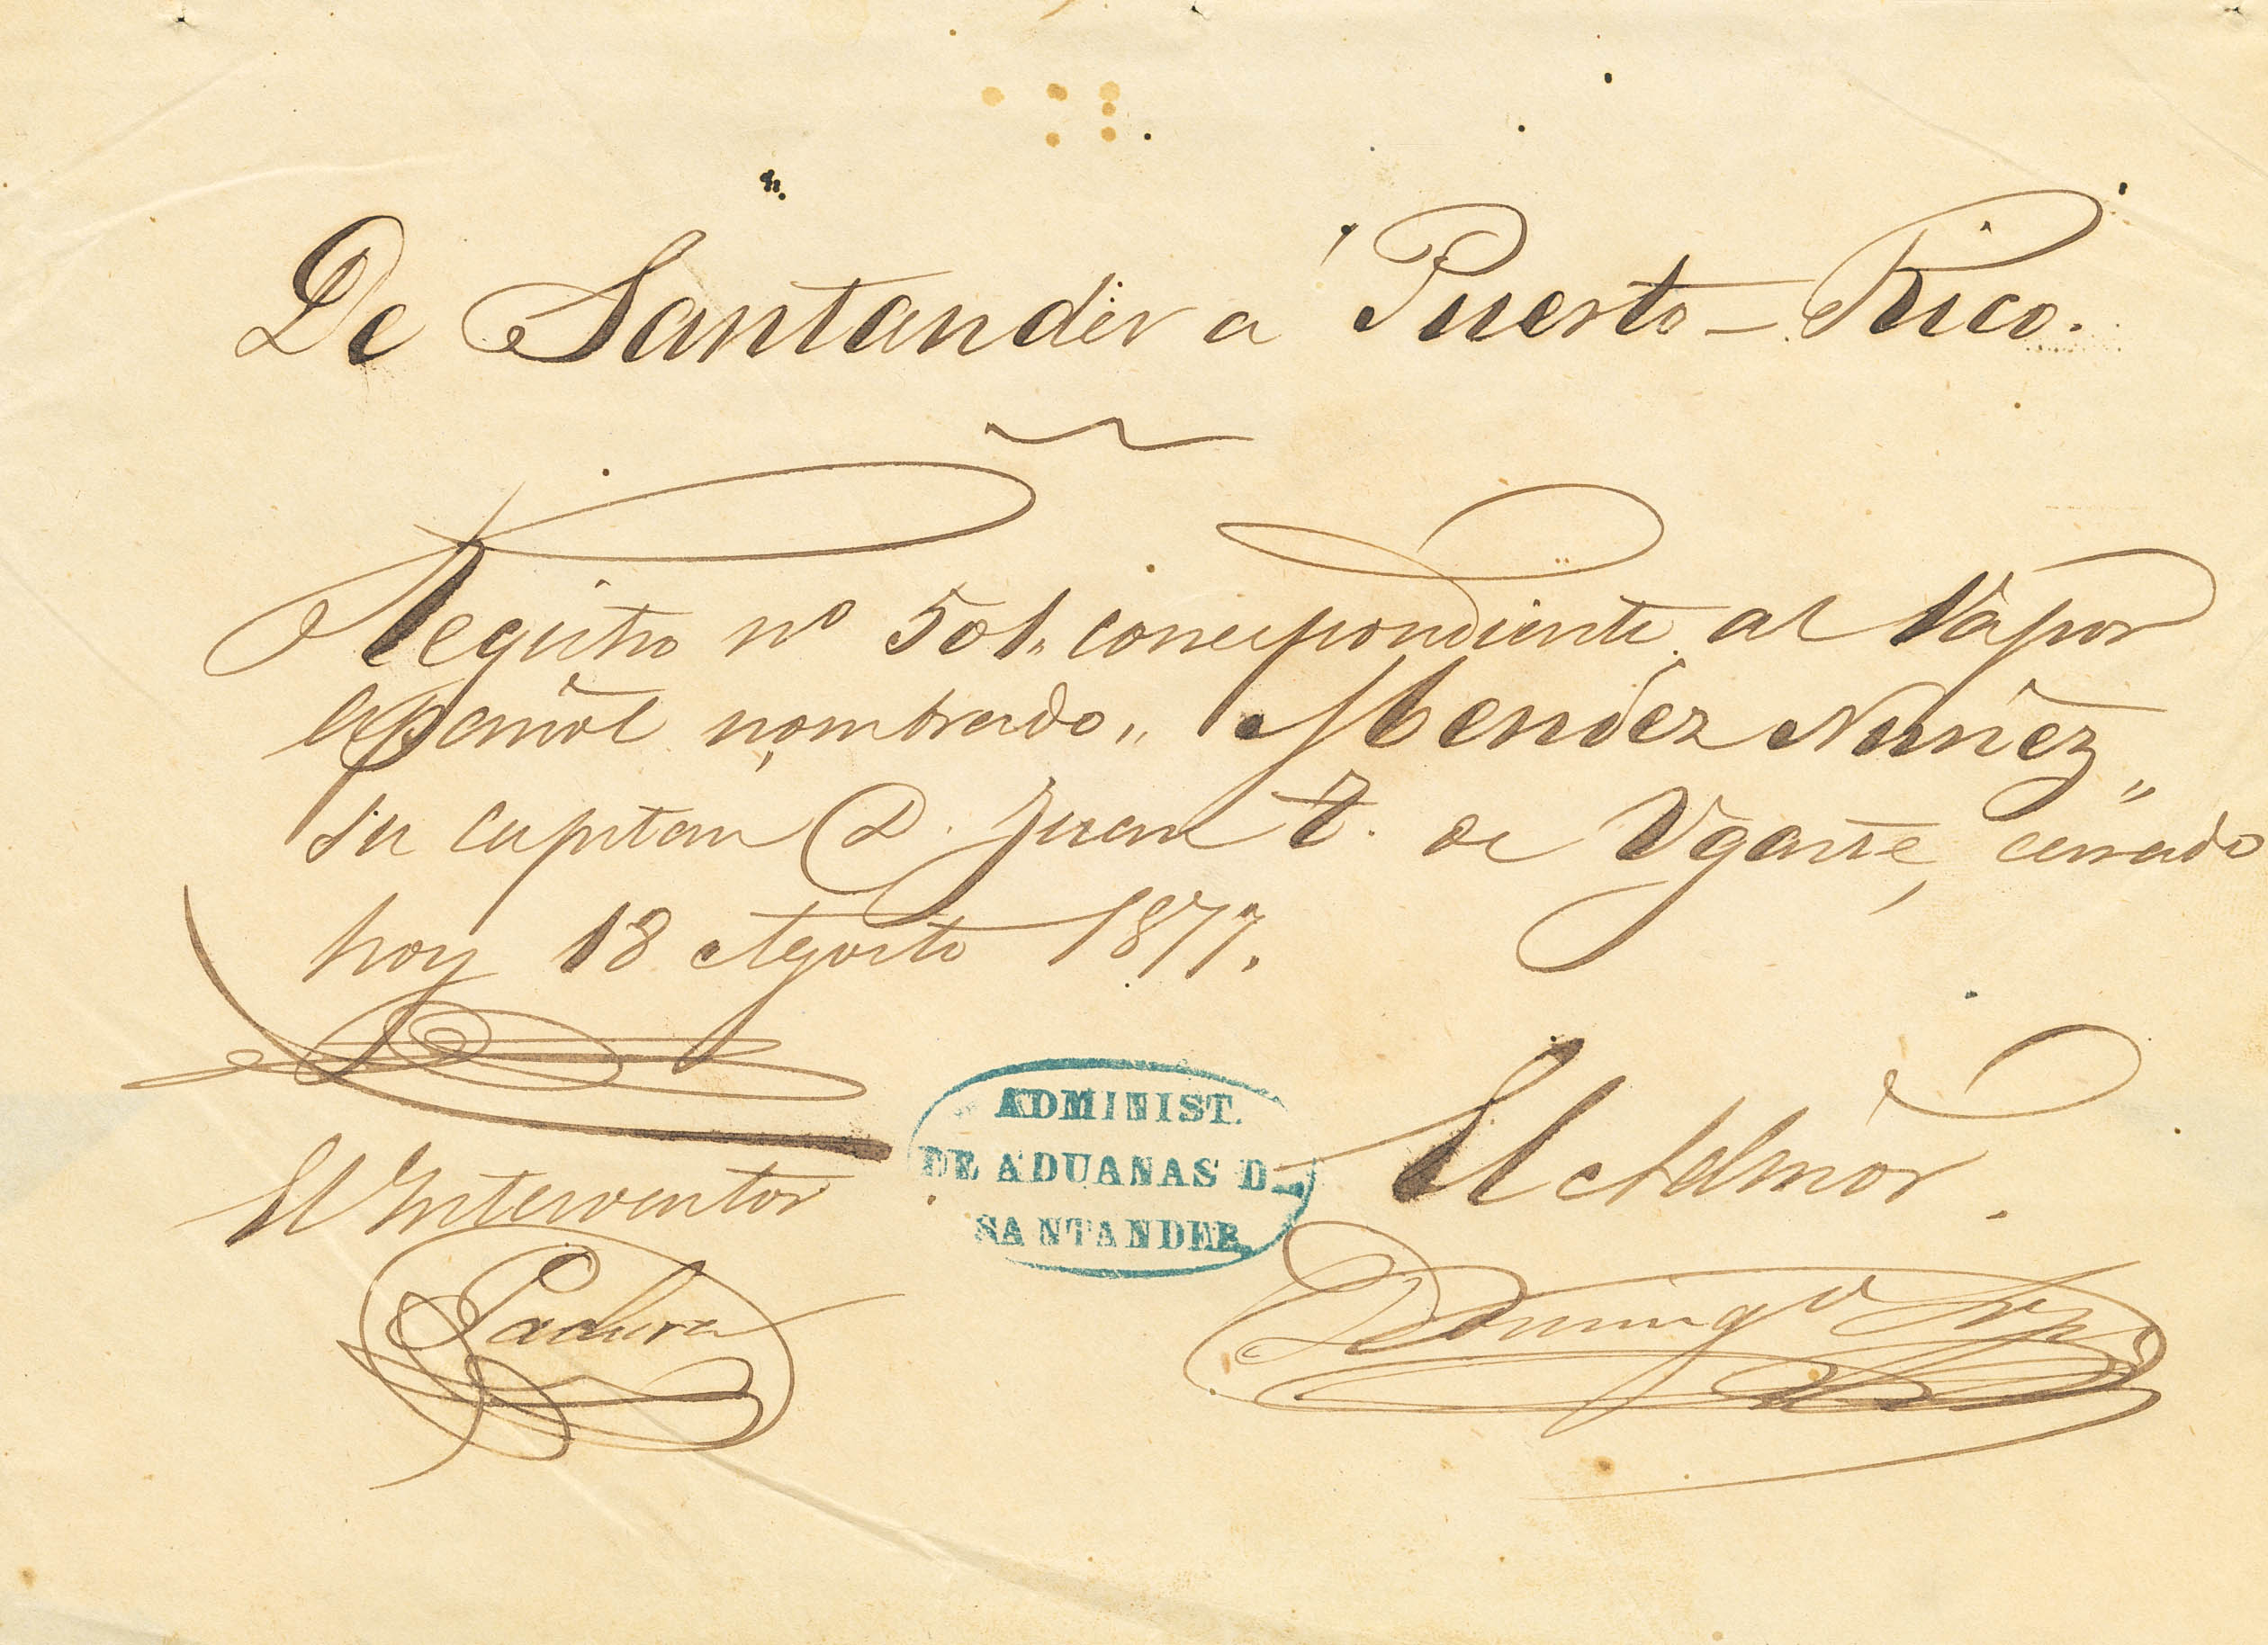 De Santander a Puerto-Rico.
Registro nº 501. correspondiente al Vapor
español nombrado,, Mendez Nuñez,,
su capitan D. Juan T. de Ugarte, cerrado
hoy 18 Agosto 1877.
ADMINIST.
DE ADUANAS D.
SANTANDER
El Interventor
El Admor.
Padura
Domingo